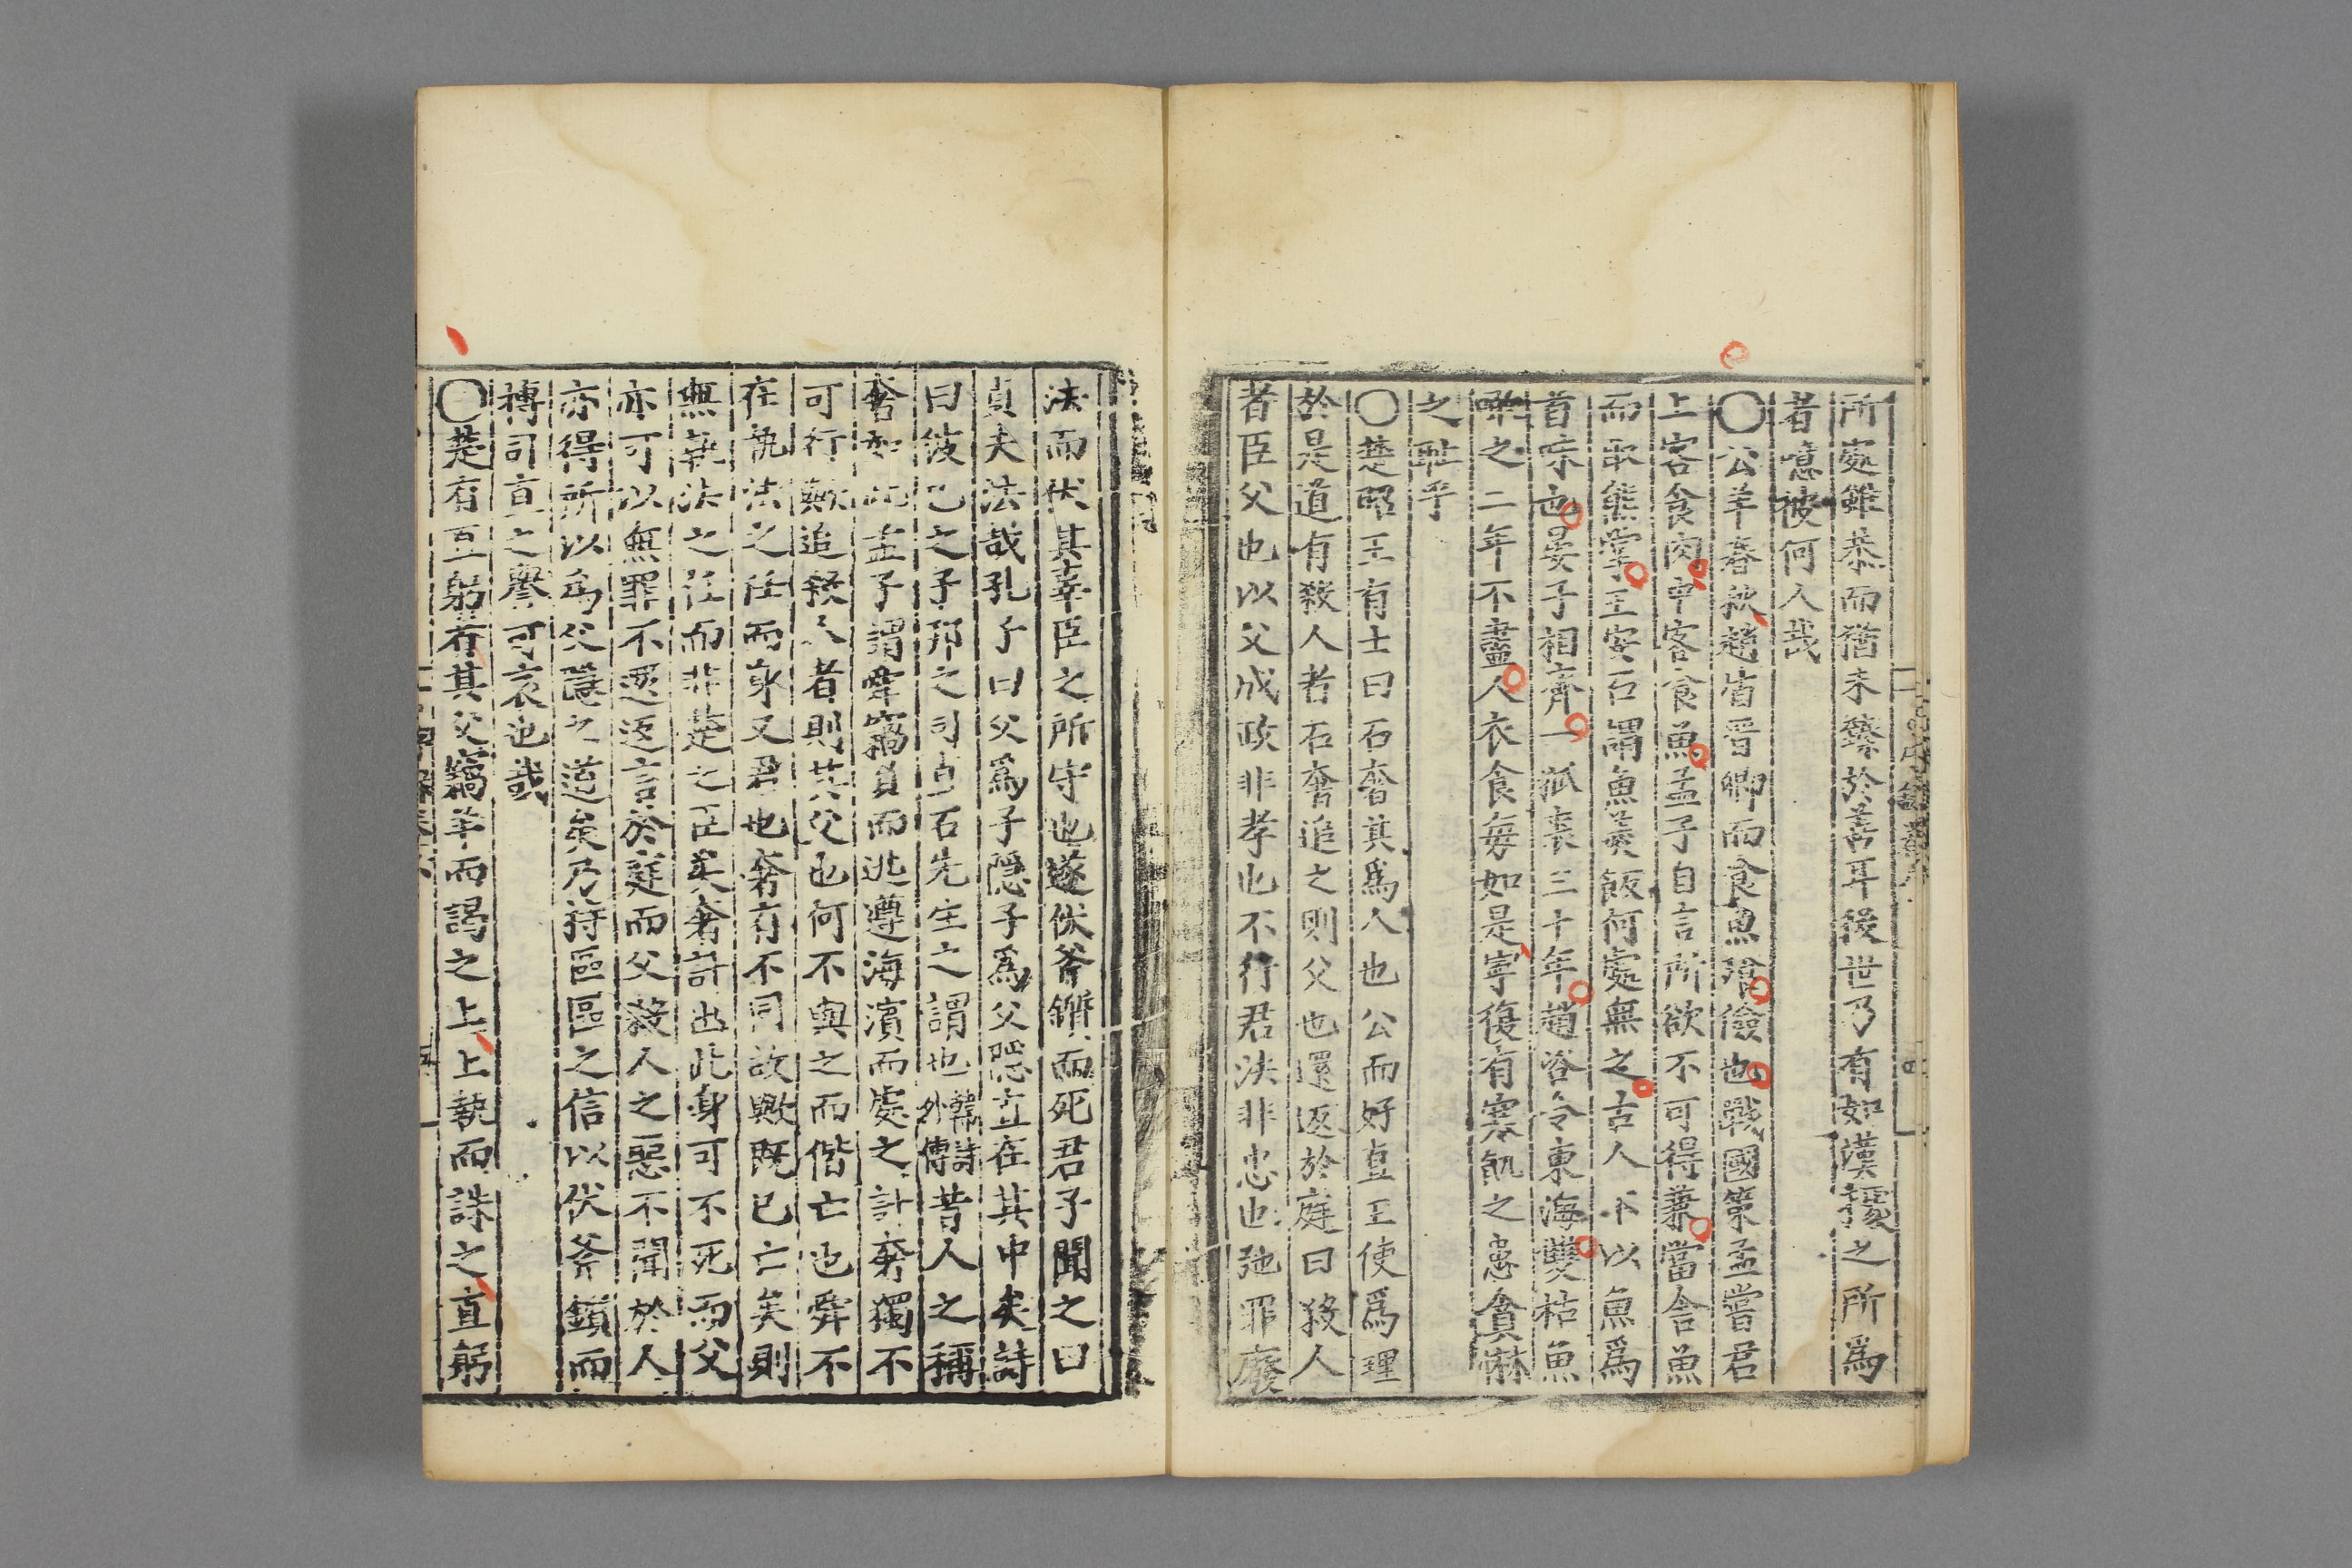 所處雖恭而猶未臻於善耳後世乃有如漢援之所為
者噫彼何人哉
〇公羊春秋趙盾晉卿而食魚飧儉也戰國策孟嘗君
上客食肉中客食魚孟子自言所欲不可得兼當舍魚
而取熊掌王安石謂魚羮飯何處無之古人不以魚爲
首味也晏子相齊一狐裘三十年趙咨令東海雙枯魚
噉之二年不盡人衣食每如是寧復有寒飢之患貪婪
之恥乎
〇楚昭王有士曰石奢其爲人也公而好直王使爲理
於是道有殺人者石奢追之則父也還返於庭曰殺人
者臣父也以父成政非孝也不行君法非忠也弛罪廢
法而伏其辜臣之所守也遂伏斧鑕而死君子聞之曰
貞夫法哉孔子曰父爲子隱子爲父隱直在其中矣詩
曰彼己之子邦之司直石先生之謂也韓詩外傳昔人之稱
奢如此孟子謂舜竊負而逃遵海濱而處之計奢獨不
可行歟追殺人者則其父也何不與之而偕亡也舜不
在執法之任而身又君也奢有不同故歟既已亡矣則
無執法之任而非楚之臣矣奢計出此身可不死而父
亦可以無罪不還返言於庭而父殺人之惡不聞於人
亦得所以爲父隱之道矣乃持區區之信以伏斧鎖而
博司直之譽可哀也哉
〇楚有直躬者其父竊羊而謁之上上執而誅之直躬